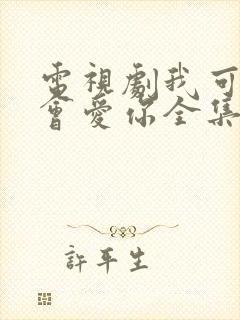 電視劇我可
會愛你全集
許平生